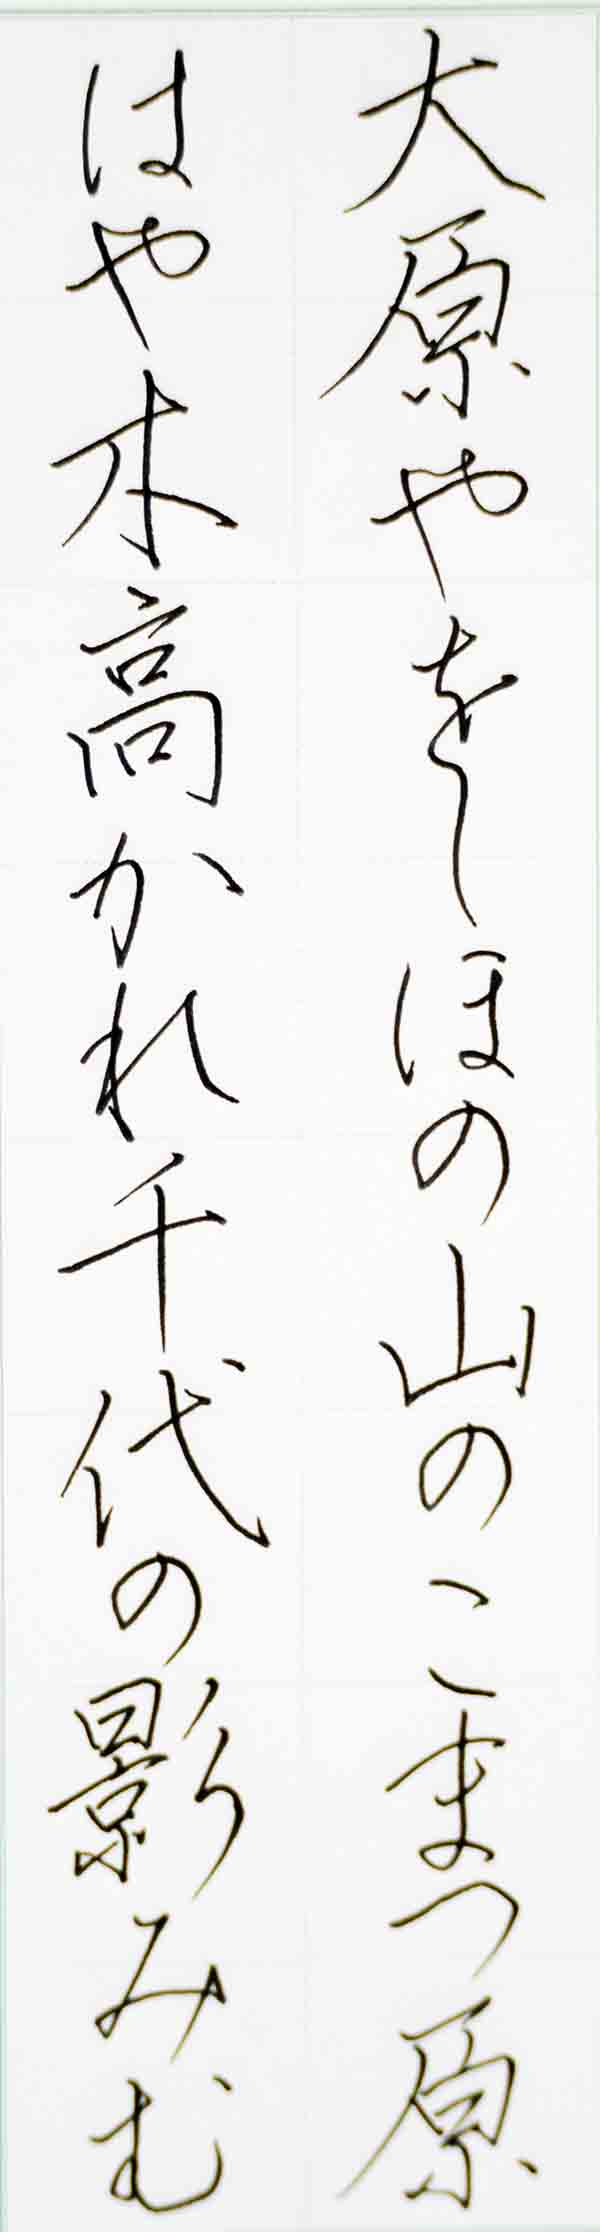 大原やをしほの山のこまつ原
はや木高かれ千代の影みむ